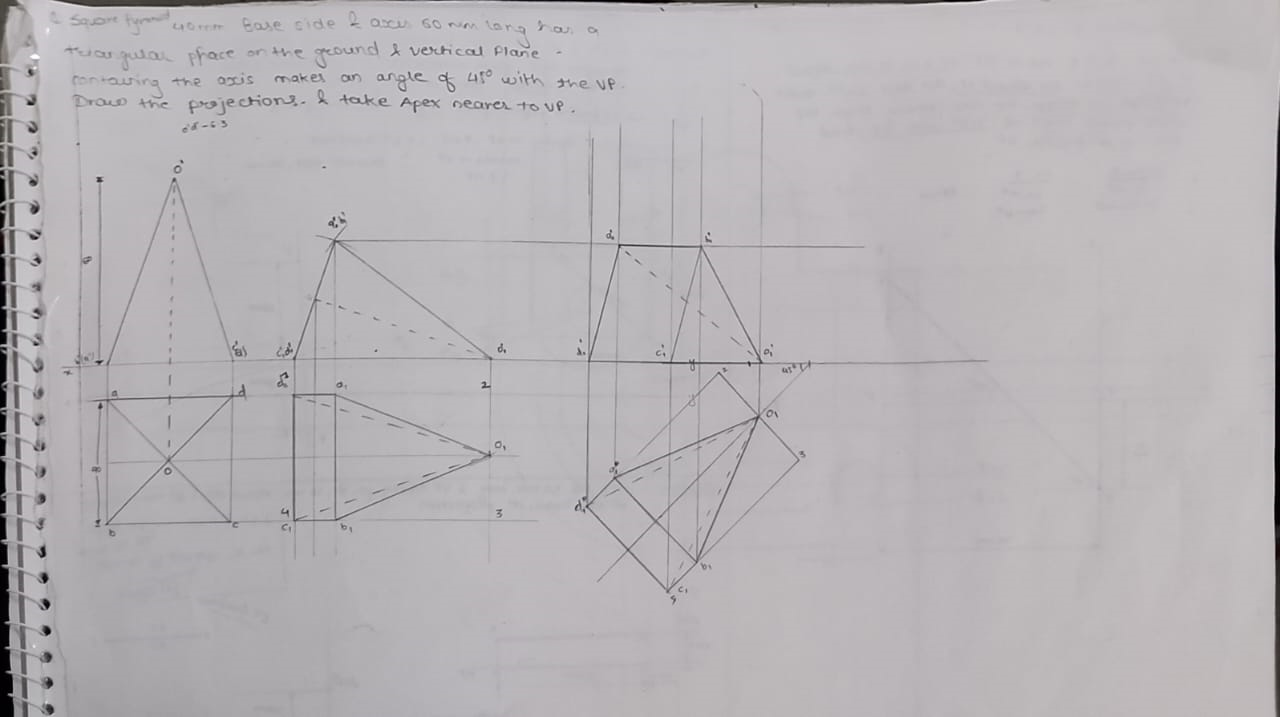 Square pyramid 40mm Base side & axis 60 mm long has a
triangular face on the ground & vertical Plane
containing the axis makes an angle of 45° with the VP.
Draw the projections. & take Apex nearer to VP.
o'd'-63
o'
a'b'
x
c'd'
o1
a
d
d1
a1
2
o
o1
b
c
4
c1
b1
3
a'
b'
d'
c'1
o1'
y
45°
2
y
o1
a1
3
d1
b1
c1
4